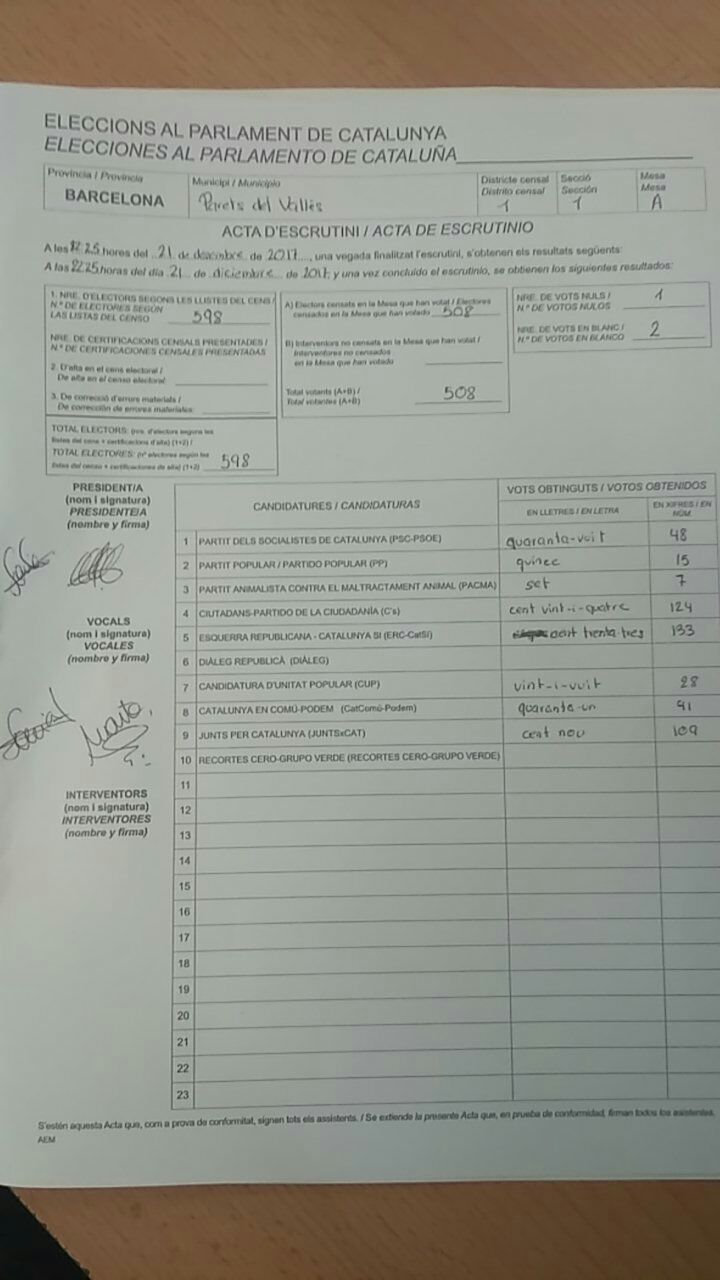 ELECCIONS AL PARLAMENT DE CATALUNYA
ELECCIONES AL PARLAMENTO DE CATALUÑA
Província / Provincia
BARCELONA
Municipi / Municipio
Parets del Vallès
Districte censal
Distrito censal
1
Secció
Sección
1
Mesa
Mesa
A
ACTA D'ESCRUTINI / ACTA DE ESCRUTINIO
A les 22.25 hores del 21 de desembre de 2017, una vegada finalitzat l'escrutini, s'obtenen els resultats següents:
A las 22.25 horas del día 21 de diciembre de 2017, y una vez concluido el escrutinio, se obtienen los siguientes resultados:
1. NRE. D'ELECTORS SEGONS LES LLISTES DEL CENS /
N.º DE ELECTORES SEGÚN
LAS LISTAS DEL CENSO 598
NRE. DE CERTIFICACIONS CENSALS PRESENTADES /
N.º DE CERTIFICACIONES CENSALES PRESENTADAS
2. D'alta en el cens electoral /
De alta en el censo electoral:
3. De correcció d'errors materials /
De corrección de errores materiales:
TOTAL ELECTORS: (nre. d'electors segons les
llistes del cens + certificacions d'alta) (1+2) /
TOTAL ELECTORES: (nº electores según las
listas del censo + certificaciones de alta) (1+2) 598
A) Electors censats en la Mesa que han votat / Electores
censados en la Mesa que han votado 508
B) Interventors no censats en la Mesa que han votat /
Interventores no censados
en la Mesa que han votado
Total votants (A+B) /
Total votantes (A+B) 508
NRE. DE VOTS NULS /
N.º DE VOTOS NULOS 1
NRE. DE VOTS EN BLANC /
N.º DE VOTOS EN BLANCO 2
PRESIDENT/A
(nom i signatura)
PRESIDENTE/A
(nombre y firma)
VOCALS
(nom i signatura)
VOCALES
(nombre y firma)
INTERVENTORS
(nom i signatura)
INTERVENTORES
(nombre y firma)
CANDIDATURES / CANDIDATURAS
VOTS OBTINGUTS / VOTOS OBTENIDOS
EN LLETRES / EN LETRA
EN XIFRES / EN NÚM.
1 PARTIT DELS SOCIALISTES DE CATALUNYA (PSC-PSOE) quaranta-vuit 48
2 PARTIT POPULAR / PARTIDO POPULAR (PP) quinze 15
3 PARTIT ANIMALISTA CONTRA EL MALTRACTAMENT ANIMAL (PACMA) set 7
4 CIUTADANS-PARTIDO DE LA CIUDADANÍA (C's) cent vint-i-quatre 124
5 ESQUERRA REPUBLICANA - CATALUNYA SÍ (ERC-CatSí) cent trenta-tres 133
6 DIÀLEG REPUBLICÀ (DIÀLEG)
7 CANDIDATURA D'UNITAT POPULAR (CUP) vint-i-vuit 28
8 CATALUNYA EN COMÚ-PODEM (CatComú-Podem) quaranta-un 41
9 JUNTS PER CATALUNYA (JUNTSxCAT) cent nou 109
10 RECORTES CERO-GRUPO VERDE (RECORTES CERO-GRUPO VERDE)
11
12
13
14
15
16
17
18
19
20
21
22
23
S'estén aquesta Acta que, com a prova de conformitat, signen tots els assistents. / Se extiende la presente Acta que, en prueba de conformidad, firman todos los asistentes.
AEM